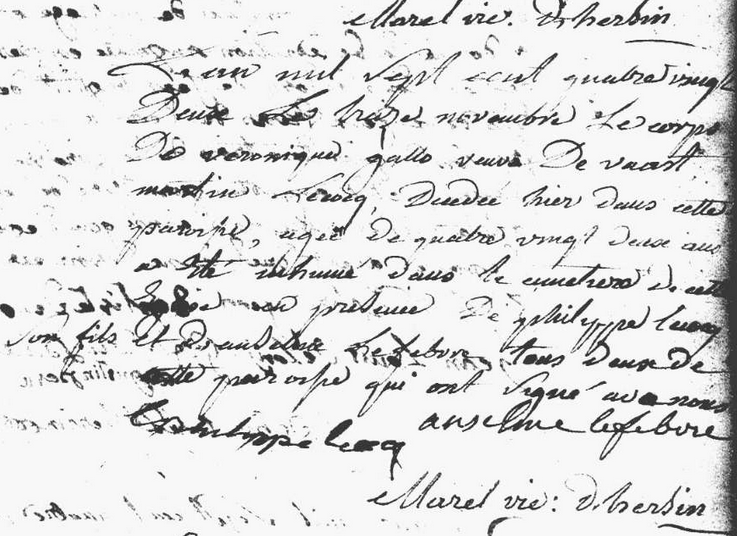 Marel vic. d'herbin
L'an mil sept cent quatre vingt
Deux Le treze novembre Le corps
De veronique gallo veuve De vaast
martin Lecocq, Decedée hier dans cette
paroisse, agée de quatre vingt deux ans
a eté inhumé dans le cimetiere de cette
en presence De philippe lecocq
son fils et D'anselme Lefebvre tous deux de
cette paroisse qui ont signé avec nous
philippe lecocq anselme lefebvre
Marel vic: d'herbin